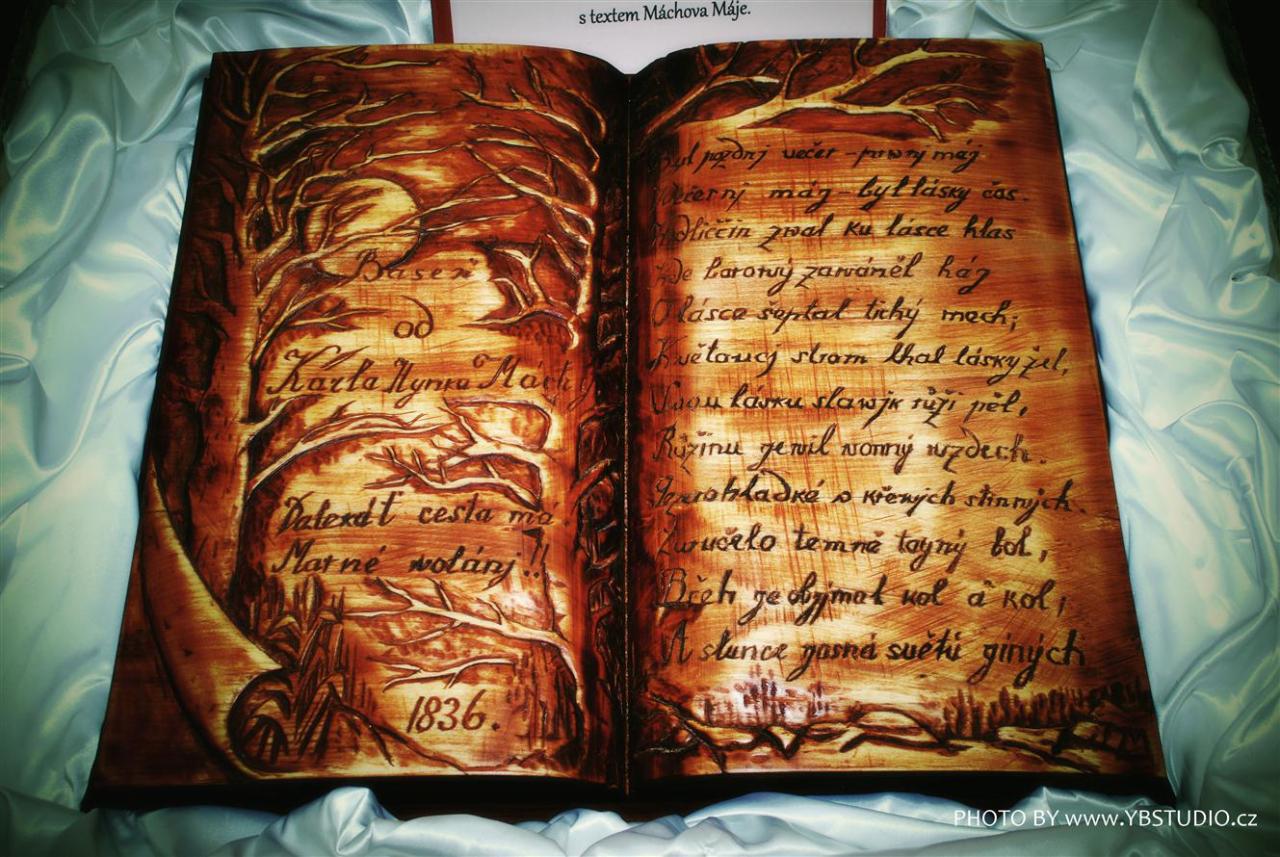 s textem Máchova Máje.
Báseň
od
Karla Hynka Máchy
Daleká ť cesta má!
Marné wolánj!!
1836.
Byl pozdnj večer – prwnj máj
Večernj máj – byl lásky čas.
Hrdliččin zwal ku lásce hlas
Kde borowý zawáněl háj
O lásce šeptal tichý mech;
Kwětaucj strom lhal lásky žel,
Swau lásku slawjk růži pěl,
Růžinu gewil wonný wzdech.
Gezero hladké w křowých stinných.
Zwučelo temně tagný bol,
Břeh ge obgjmal kol a kol;
A slunce gasná světů giných
PHOTO BY www.YBSTUDIO.cz